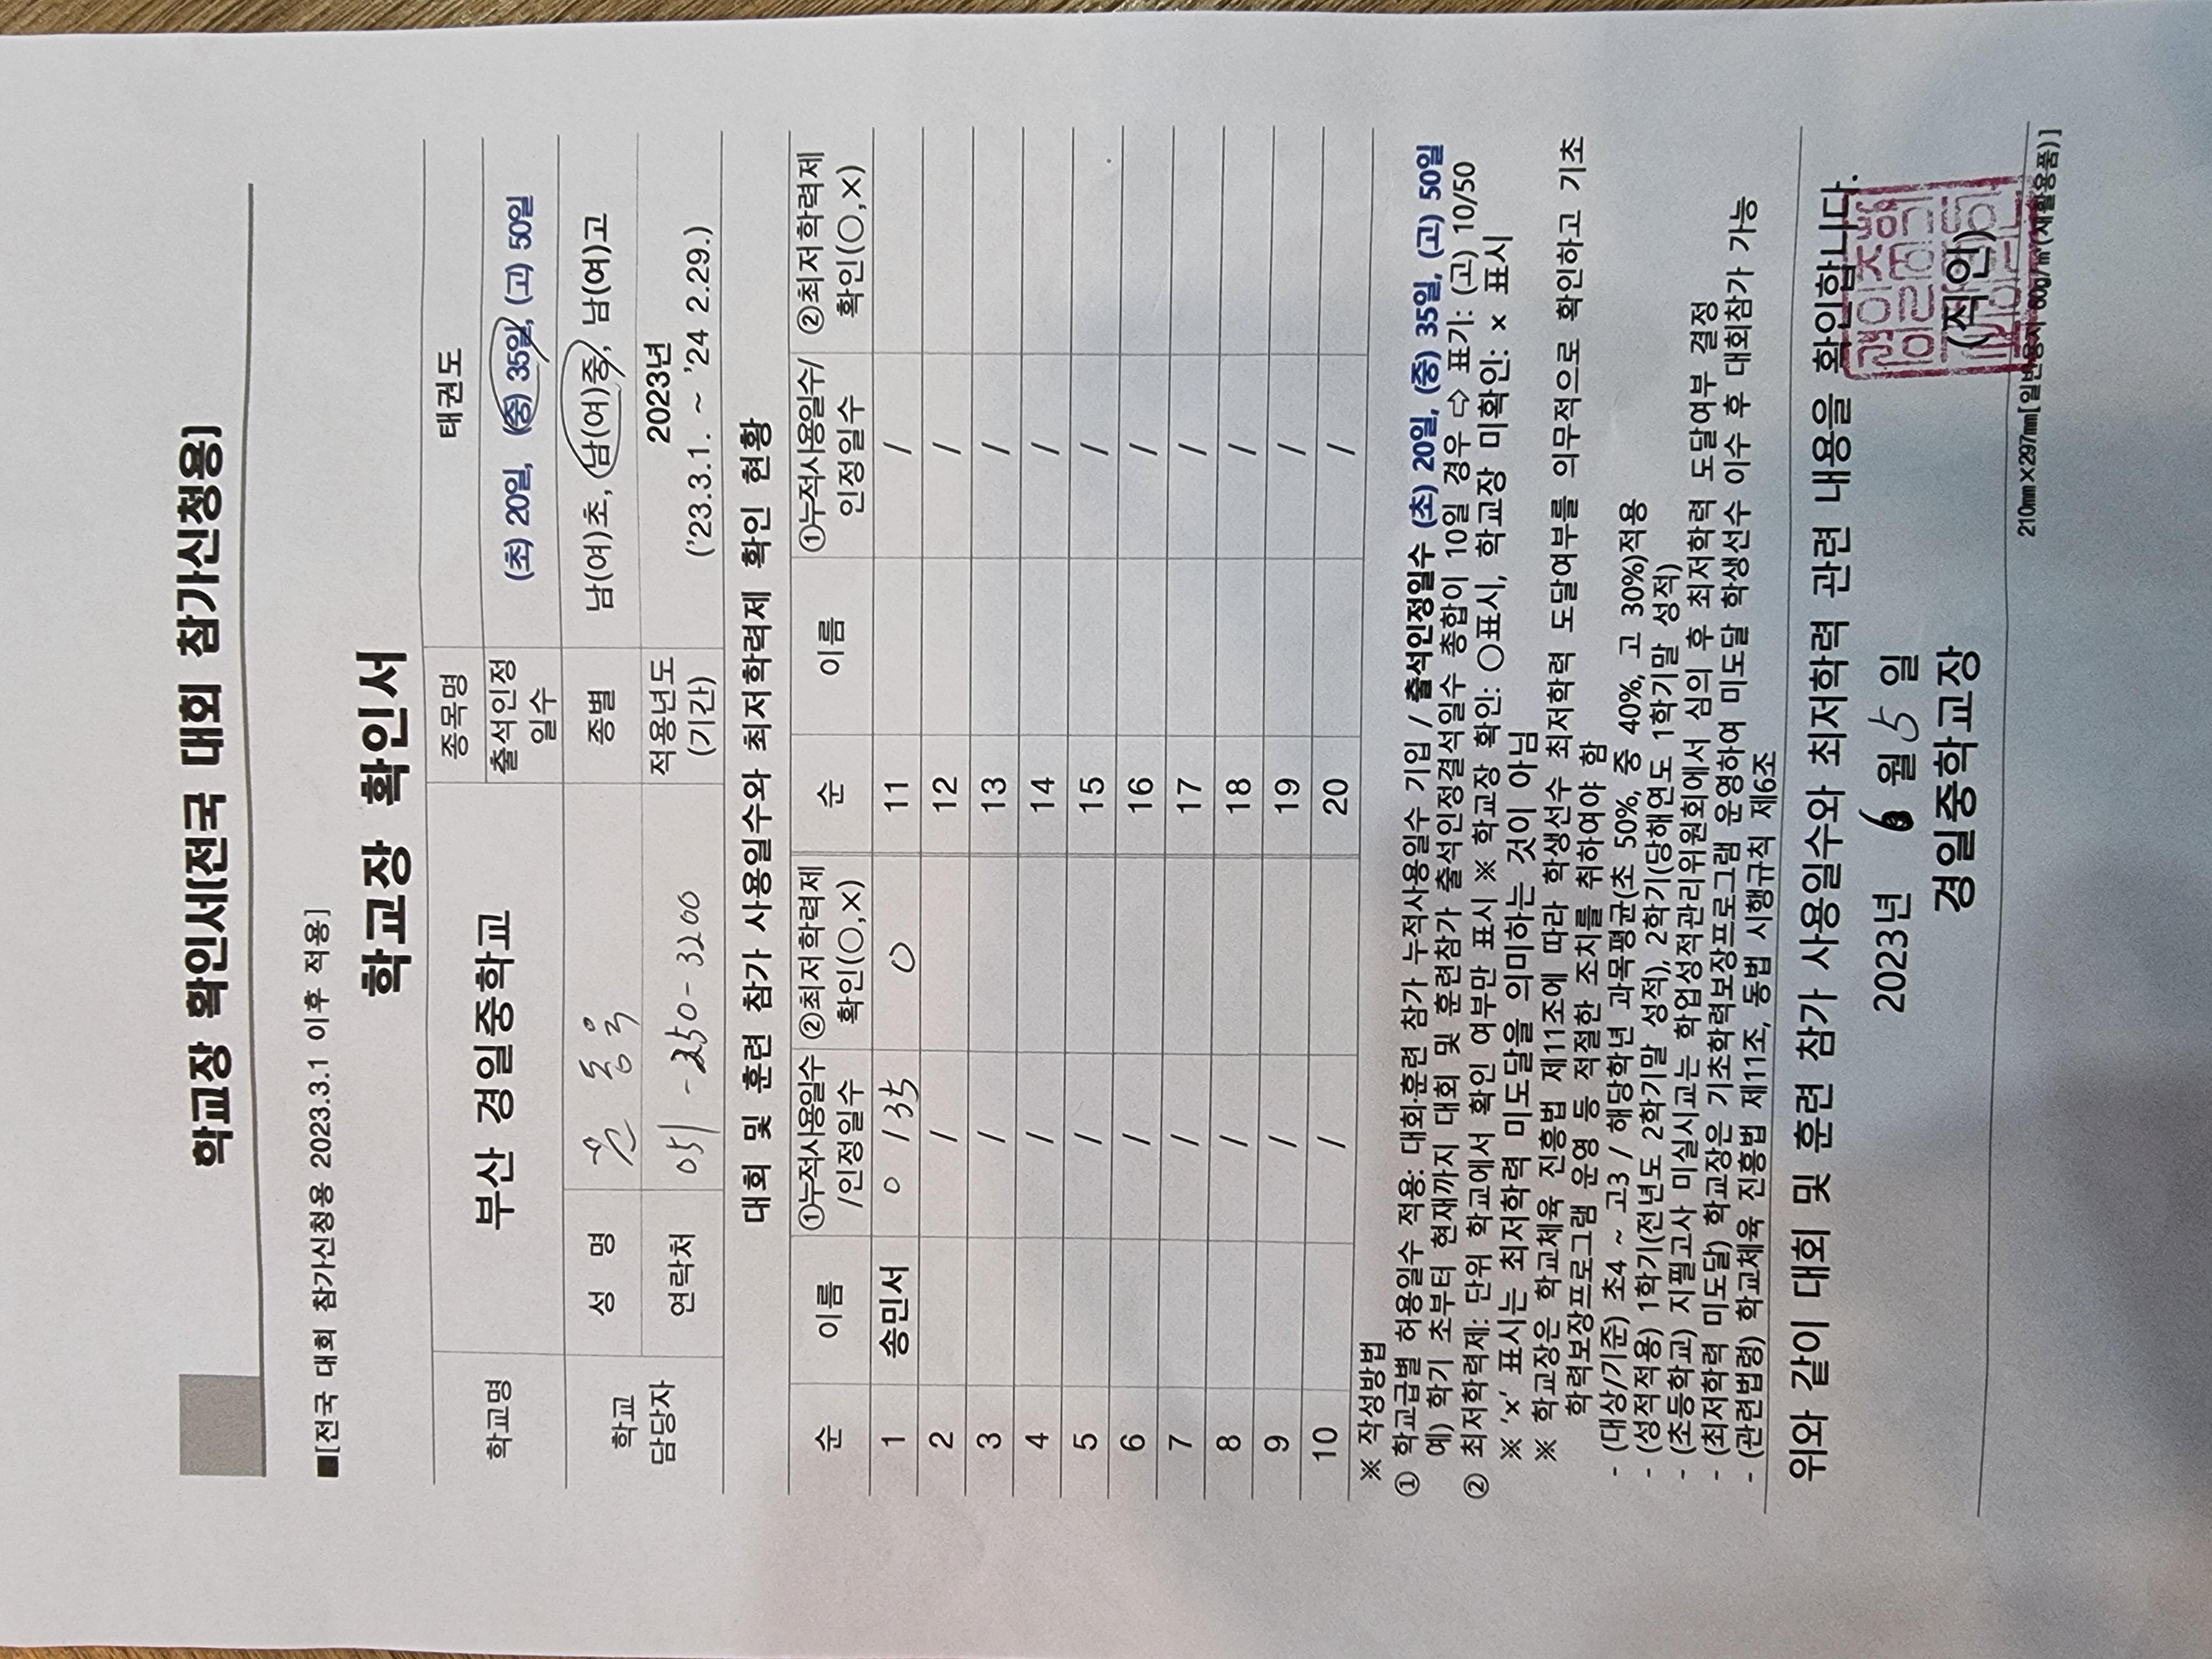 학교장 확인서[전국 대회 참가신청용]
■[전국 대회 참가신청용 2023.3.1 이후 적용]
학교장 확인서
학교명 부산 경일중학교 종목명 태권도
출석인정 일수 (초) 20일, (중) 35일, (고) 50일
학교 담당자 성 명 동욱 종별 남(여)초, 남(여)중, 남(여)고
연락처 051-250-3200 적용년도 (기간) 2023년 ('23.3.1. ~ '24 2.29.)
대회 및 훈련 참가 사용일수와 최저학력제 확인 현황
순 이름 ①누적사용일수 /인정일수 ②최저학력제 확인(○,×) 순 이름 ①누적사용일수/ 인정일수 ②최저학력제 확인(○,×)
1 송민서 0 / 35 O 11 /
2 / 12 /
3 / 13 /
4 / 14 /
5 / 15 /
6 / 16 /
7 / 17 /
8 / 18 /
9 / 19 /
10 / 20 /
※ 작성방법
① 학교급별 허용일수 적용: 대회·훈련 참가 누적사용일수 기입 / 출석인정일수 (초) 20일, (중) 35일, (고) 50일
예) 학기 초부터 현재까지 대회 및 훈련참가 출석인정결석일수 총합이 10일 경우 ⇨ 표기: (고) 10/50
② 최저학력제: 단위 학교에서 확인 여부만 표시 ※ 학교장 확인: ○표시, 학교장 미확인: × 표시
※ '×' 표시는 최저학력 미도달을 의미하는 것이 아님
※ 학교장은 학교체육 진흥법 제11조에 따라 학생선수 최저학력 도달여부를 의무적으로 확인하고 기초
학력보장프로그램 운영 등 적절한 조치를 취하여야 함
- (대상/기준) 초4 ~ 고3 / 해당학년 과목평균(초 50%, 중 40%, 고 30%)적용
- (성적적용) 1학기(전년도 2학기말 성적), 2학기(당해연도 1학기말 성적)
- (초등학교) 지필고사 미실시교는 학업성적관리위원회에서 심의 후 최저학력 도달여부 결정
- (최저학력 미도달) 학교장은 기초학력보장프로그램 운영하여 미도달 학생선수 이수 후 대회참가 가능
- (관련법령) 학교체육 진흥법 제11조, 동법 시행규칙 제6조
위와 같이 대회 및 훈련 참가 사용일수와 최저학력 관련 내용을 확인합니다.
2023년 6 월 5 일
경일중학교장 (직인)
210㎜×297㎜[일반용지 60g/㎡(재활용품)]